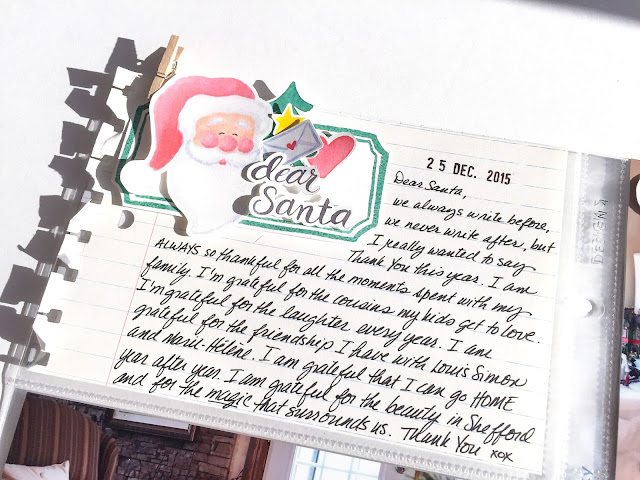 dear
Santa
25 DEC. 2015
Dear Santa,
we always write before,
we never write after, but
I really wanted to say
Thank You this year. I am
ALWAYS so thankful for all the moments spent with my
family. I'm grateful for the cousins my kids get to love.
I'm grateful for the laughter every year. I am
grateful for the friendship I have with Louis Simon
and Marie-Hélène. I am grateful that I can go HOME
year after year. I am grateful for the beauty in Shefford
and for the magic that surrounds us. Thank You xox